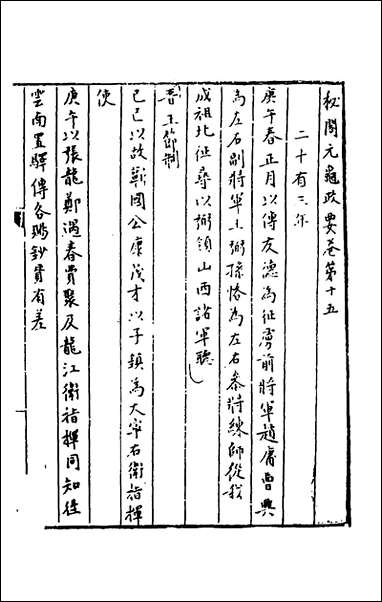 秘閣元龜政要卷第十五
二十有三年
庚午春正月以傅友德為征虜前將軍趙庸曹興
為左右副將軍王弼孫恪為左右參將練師從我
成祖北征尋以弼領山西諸軍聽
晉王節制
己巳以故蘄國公康茂才以子鎮為大寧右衛指揮
使
庚午以張龍鄭遇春貫聚及龍江衛指揮同知往
雲南置驛傳各賜鈔貫有差